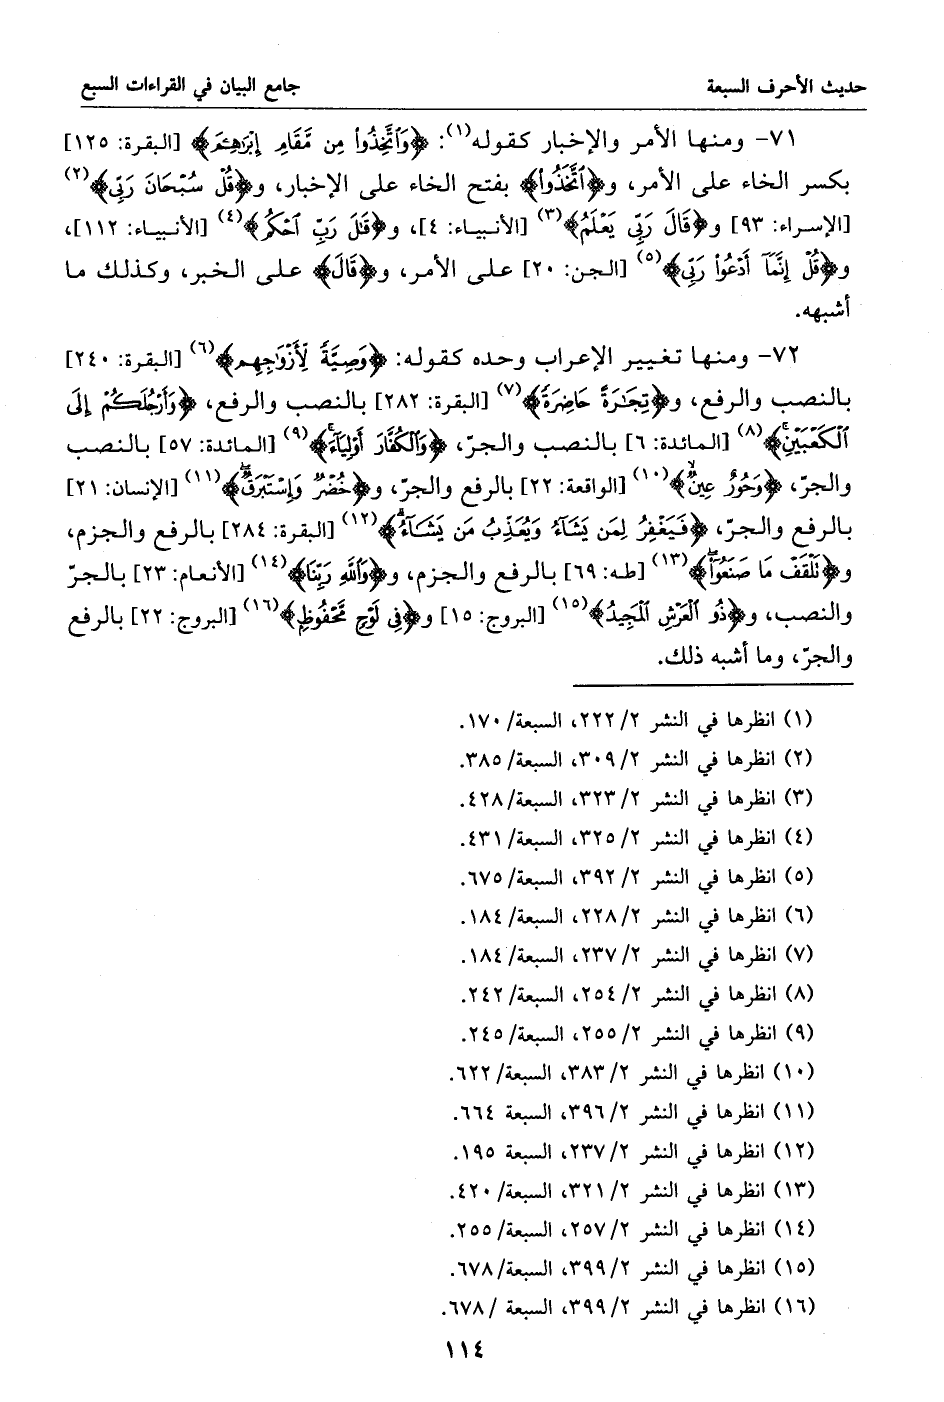 حديث الأحرف السبعة
جامع البيان في القراءات السبع
٧١- ومنها الأمر والإخبار كقوله(١): ﴿وَٱتَّخِذُوا۟ مِن مَّقَامِ إِبْرَٰهِـۧمَ﴾ [البقرة: ١٢٥]
بكسر الخاء على الأمر، و﴿ٱتَّخَذُوا۟﴾ بفتح الخاء على الإخبار، و﴿قُلْ سُبْحَانَ رَبِّى﴾(٢)
[الإسراء: ٩٣] و﴿قَالَ رَبِّى يَعْلَمُ﴾(٣) [الأنبياء: ٤]، و﴿قَٰلَ رَبِّ ٱحْكُم﴾(٤) [الأنبياء: ١١٢]،
و﴿قُلْ إِنَّمَآ أَدْعُوا۟ رَبِّى﴾(٥) [الجن: ٢٠] على الأمر، و﴿قَالَ﴾ على الخبر، وكذلك ما
أشبهه.
٧٢- ومنها تغيير الإعراب وحده كقوله: ﴿وَصِيَّةً لِّأَزْوَٰجِهِم﴾(٦) [البقرة: ٢٤٠]
بالنصب والرفع، و﴿تِجَٰرَةً حَاضِرَةً﴾(٧) [البقرة: ٢٨٢] بالنصب والرفع، ﴿وَأَرْجُلَكُمْ إِلَى
ٱلْكَعْبَيْنِ﴾(٨) [المائدة: ٦] بالنصب والجرّ، ﴿وَٱلْكُفَّارَ أَوْلِيَآءَ﴾(٩) [المائدة: ٥٧] بالنصب
والجرّ، ﴿وَحُورٌ عِينٌ﴾(١٠) [الواقعة: ٢٢] بالرفع والجرّ، و﴿خُضْرٌ وَإِسْتَبْرَقٌ﴾(١١) [الإنسان: ٢١]
بالرفع والجرّ، ﴿فَيَغْفِرُ لِمَن يَشَآءُ وَيُعَذِّبُ مَن يَشَآءُ﴾(١٢) [البقرة: ٢٨٤] بالرفع والجزم،
و﴿تَلْقَفْ مَا صَنَعُوٓا۟﴾(١٣) [طه: ٦٩] بالرفع والجزم، و﴿وَٱللَّهِ رَبِّنَا﴾(١٤) [الأنعام: ٢٣] بالجرّ
والنصب، و﴿ذُو ٱلْعَرْشِ ٱلْمَجِيدُ﴾(١٥) [البروج: ١٥] و﴿فِى لَوْحٍ مَّحْفُوظٍ﴾(١٦) [البروج: ٢٢] بالرفع
والجرّ، وما أشبه ذلك.
(١) انظرها في النشر ٢/ ٢٢٢، السبعة/ ١٧٠.
(٢) انظرها في النشر ٢/ ٣٠٩، السبعة/ ٣٨٥.
(٣) انظرها في النشر ٢/ ٣٢٣، السبعة/ ٤٢٨.
(٤) انظرها في النشر ٢/ ٣٢٥، السبعة/ ٤٣١.
(٥) انظرها في النشر ٢/ ٣٩٢، السبعة/ ٦٧٥.
(٦) انظرها في النشر ٢/ ٢٢٨، السبعة/ ١٨٤.
(٧) انظرها في النشر ٢/ ٢٣٧، السبعة/ ١٨٤.
(٨) انظرها في النشر ٢/ ٢٥٤، السبعة/ ٢٤٢.
(٩) انظرها في النشر ٢/ ٢٥٥، السبعة/ ٢٤٥.
(١٠) انظرها في النشر ٢/ ٣٨٣، السبعة/ ٦٢٢.
(١١) انظرها في النشر ٢/ ٣٩٦، السبعة ٦٦٤.
(١٢) انظرها في النشر ٢/ ٢٣٧، السبعة ١٩٥.
(١٣) انظرها في النشر ٢/ ٣٢١، السبعة/ ٤٢٠.
(١٤) انظرها في النشر ٢/ ٢٥٧، السبعة/ ٢٥٥.
(١٥) انظرها في النشر ٢/ ٣٩٩، السبعة/ ٦٧٨.
(١٦) انظرها في النشر ٢/ ٣٩٩، السبعة / ٦٧٨.
١١٤